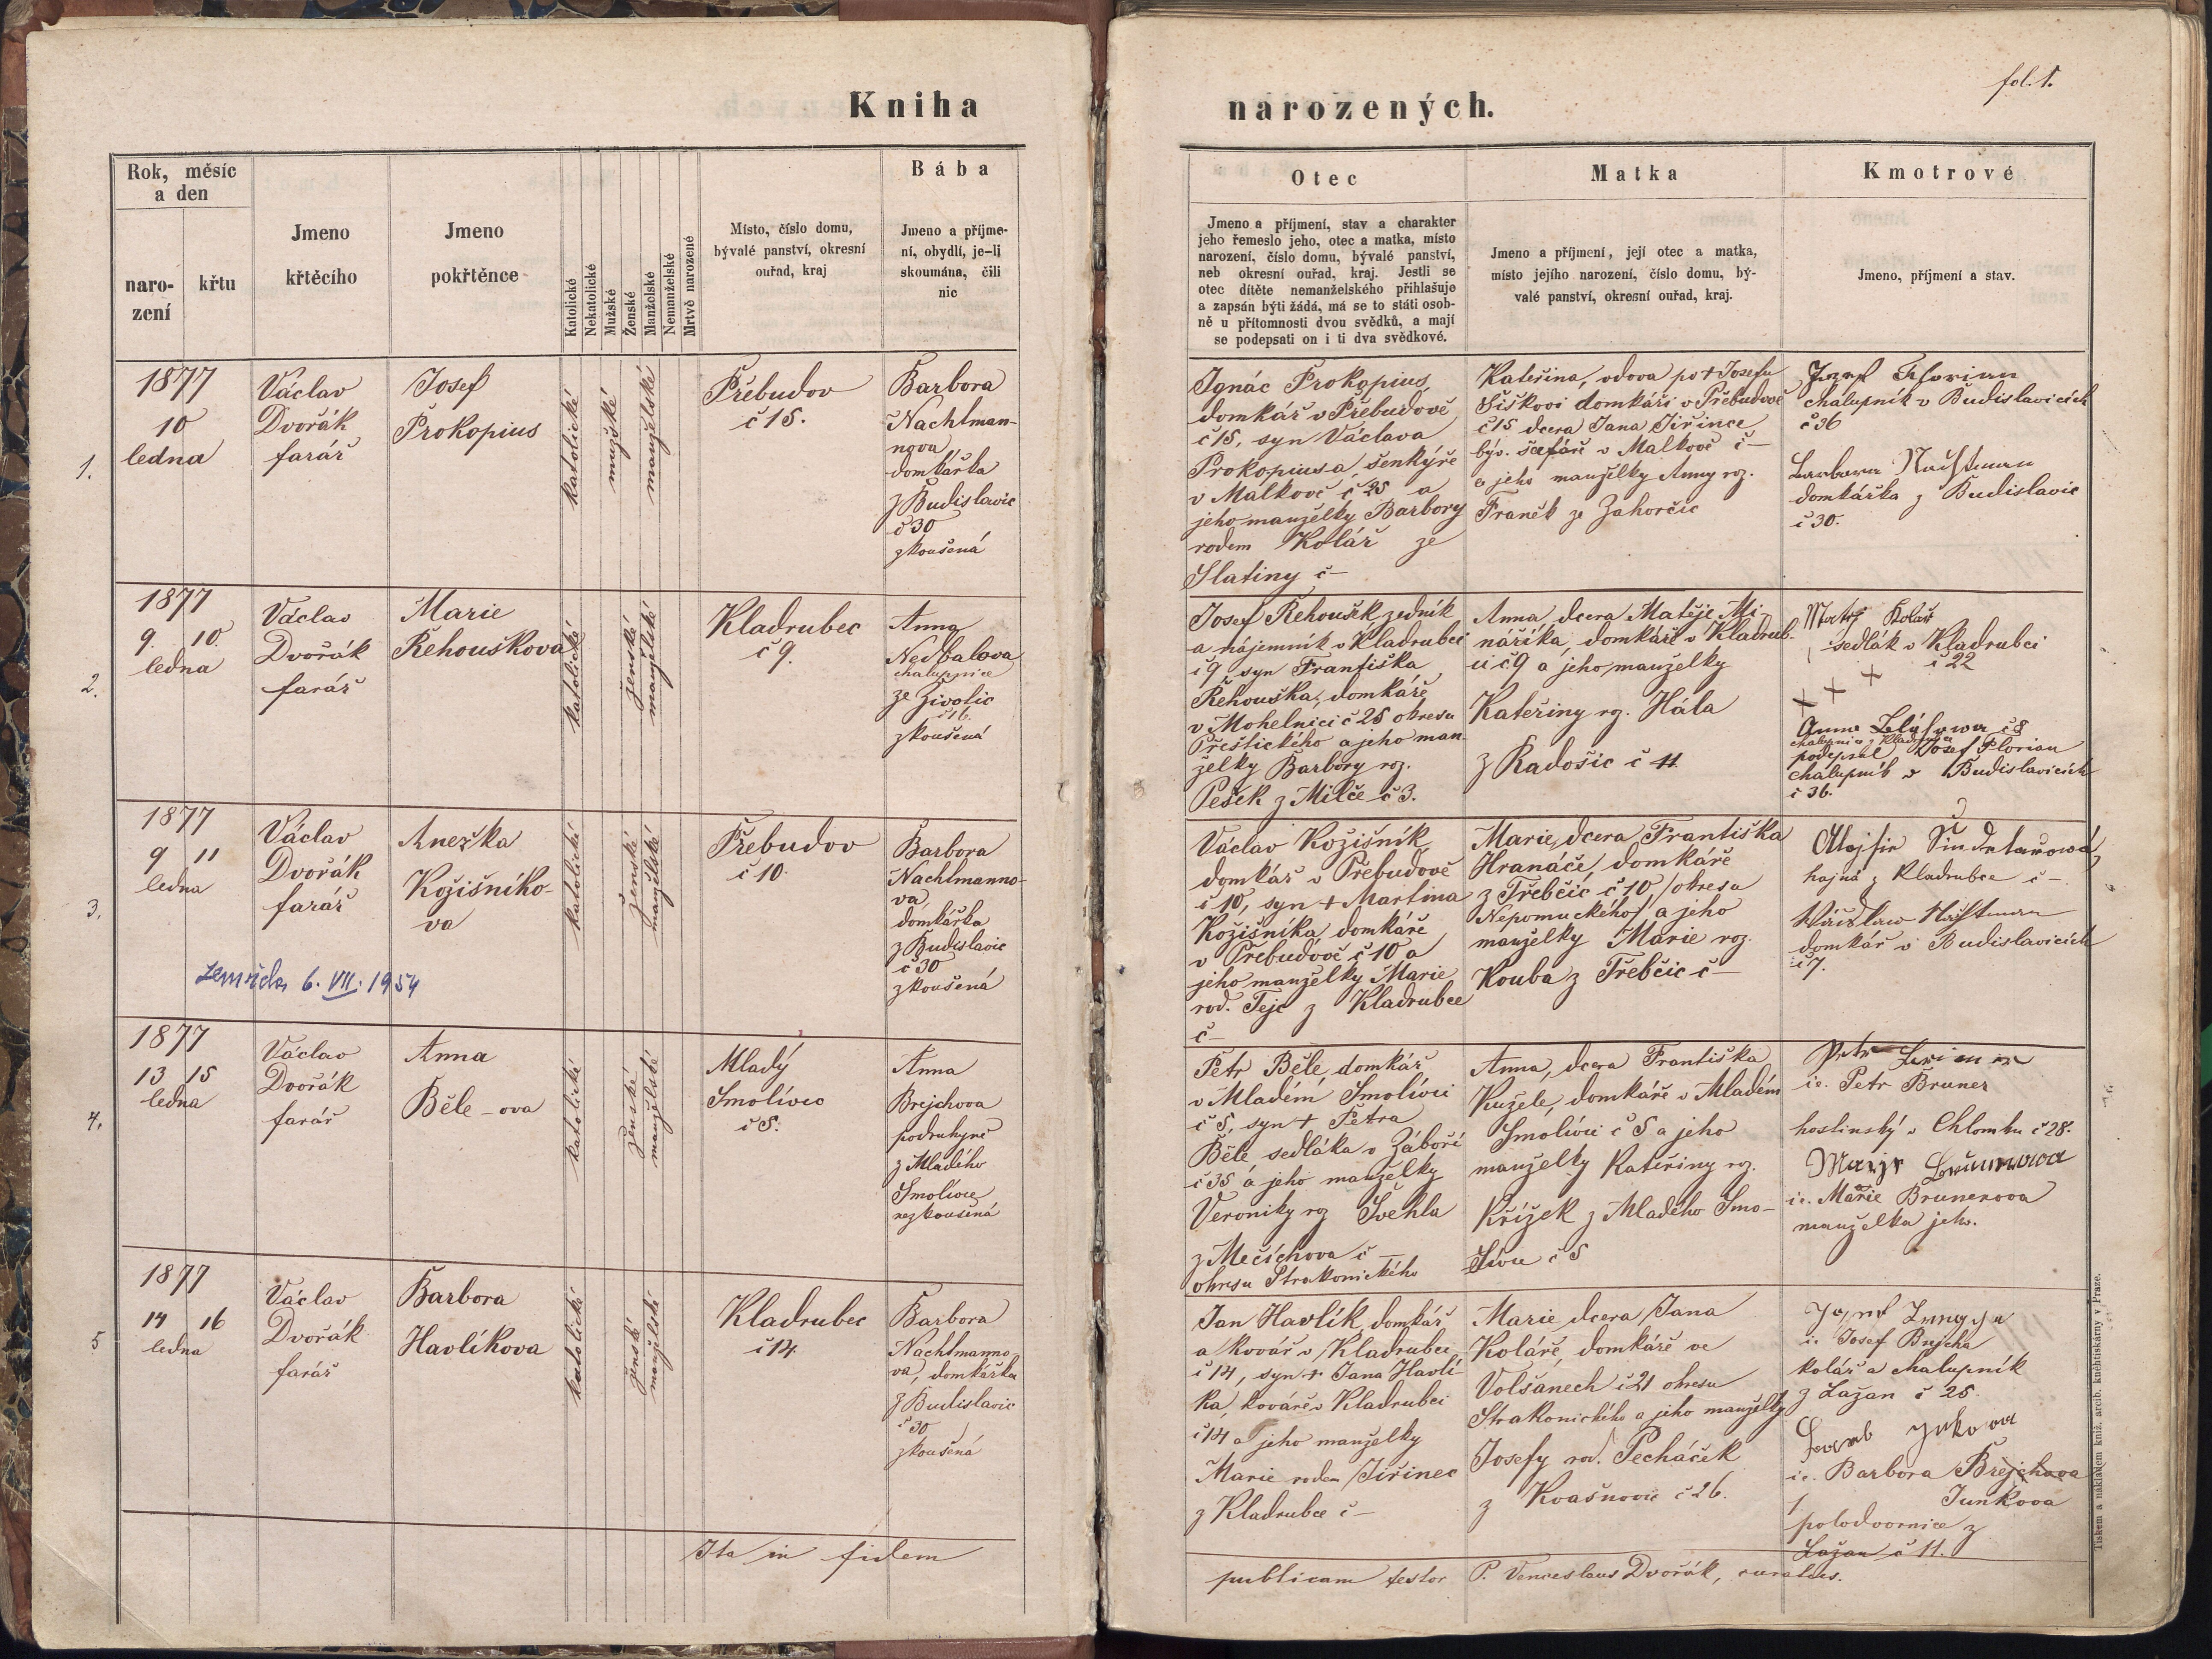 fol. 1.
Kniha narozených.
Rok, měsíc
a den
naro-
zení
křtu
Jmeno
křtěcího
Jmeno
pokřtěnce
Katolické
Nekatolické
Mužské
Ženské
Manželské
Nemanželské
Mrtvě narozené
Místo, číslo domu,
bývalé panství, okresní
ouřad, kraj
Bába
Jmeno a příjme-
ní, obydlí, je-li
skoumána, čili
nic
Otec
Jmeno a příjmení, stav a charakter
jeho řemeslo jeho, otec a matka, místo
narození, číslo domu, bývalé panství,
neb okresní ouřad, kraj. Jestli se
otec dítěte nemanželského přihlašuje
a zapsán býti žádá, má se to státi osob-
ně u přítomnosti dvou svědků, a mají
se podepsati on i ti dva svědkové.
Matka
Jmeno a příjmení, její otec a matka,
místo jejího narození, číslo domu, bý-
valé panství, okresní ouřad, kraj.
Kmotrové
Jmeno, příjmení a stav.
1.
1877
10
ledna
Václav
Dvořák
farář
Josef
Prokopius
katolické
mužské
manželské
Přebudov
č 15.
Barbora
Nachlman-
nova
domkářka
z Budislavic
č 30
zkoušená
Ignác Prokopius,
domkář v Přebudově
č 15, syn Václava
Prokopiusa, šenkýře
v Málkově č 25 a
jeho manželky Barbory
rodem Kolář ze
Slatiny č –
Kateřina, vdova po + Josefu
Šiškovi domkáři v Přebudově
č 15 dcera Jana Jiřince
býv. šafáře v Malkově č –
a jeho manželky Anny roz.
Franěk ze Zahorčic
Josef Florian
chalupník v Budislavicích
č 36
Barbora Nachtman
domkářka z Budislavic
č 30.
2.
1877
9. 10.
ledna
Václav
Dvořák
farář
Marie
Řehouškova
katolické
ženské
manželské
Kladrubec
č 9.
Anna
Nedbalova
chalupnice
ze Živolic
č 16.
zkoušená
Josef Řehoušek zedník
a nájemník v Kladrubci
č 9 syn Františka
Řehouška, domkáře
v Mohelnici č 25 okresu
Přeštického a jeho man-
želky Barbory roz.
Pešek z Milče č 3.
Anna, dcera Matěje Mi-
nářika, domkáře v Kladrub-
ci č. 9 a jeho manželky
Kateřiny rz. Hála
z Radošic č 11.
Matěj Kolář
sedlák v Kladrubci
č 22
+ + +
Anna č 8
chalupnice z Kladrubce
podepsal Josef Florian
chalupník v Budislavicích
č 36.
3.
1877
9 11
ledna
Václav
Dvořák
farář
Anežka
Kožišníko-
va
zemřela 6. VII. 1954
katolické
ženské
manželské
Přebudov
č 10.
Barbora
Nachlmanno-
va,
domkářka
z Budislavic
č 30
zkoušená
Václav Kožišník,
domkář v Přebudově
č 10, syn + Martina
Kožišníka domkáře
v Přebudově č 10 a
jeho manželky Marie
rod. Tejc z Kladrubce
č –
Marie, dcera Františka
Hranáče, domkáře
z Třebčic č 10 /okresu
Nepomuckého/ a jeho
manželky Marie roz.
Kouba z Třebčic č –
hajná z Kladrubce č –
domkář v Budislavicích
č 7.
4.
1877
13 15
ledna
Václav
Dvořák
farář
Anna
Běle-ova
katolické
ženské
manželské
Mladý
Smolivec
č 5.
Anna
Brejchova
podruhyně
z Mladého
Smolivce
nezkoušená
Petr Běle, domkář
v Mladém Smolivci
č 5, syn + Petra
Běle sedláka v Záboří
č 35 a jeho manželky
Veroniky rz Švehla
z Mečichova č –
okresu Strakonického
Anna, dcera Františka
Kužele, domkáře v Mladém
Smolivci č 5 a jeho
manželky Kateřiny rz.
Křížek z Mladého Smo-
livce č 5
Petr Bruner
ic. Petr Bruner
hostinský v Chlomku č 28.
ic. Marie Brunerova
manželka jeho.
5
1877
14 16
ledna
Václav
Dvořák
farář
Barbora
Havlíkova
katolické
ženské
manželské
Kladrubec
č 14.
Barbora
Nachlmanno-
va, domkářka
z Budislavic
č 30
zkoušená
Jan Havlík, domkář
a kovář v Kladrubci
č 14, syn + Jana Havlí-
ka, kováře v Kladrubci
č 14 a jeho manželky
Marie rodem Jiřinec
z Kladrubce č –
Marie dcera Jana
Koláře, domkáře ve
Volšanech č 21 okresu
Strakonického a jeho manželky
Josefy rod. Pecháček
z Kvašňovic č 26.
ic. Josef Brejcha
kolář a chalupník
z Lažan č 25.
ic. Barbora Brejchova
Junkova
polodvornice z
Lažan č 11.
Ita in fidem publicam testor P. Venceslaus Dvořák, curatus.
Tiskem a nákladem kniž. arcib. knihtiskárny v Praze.